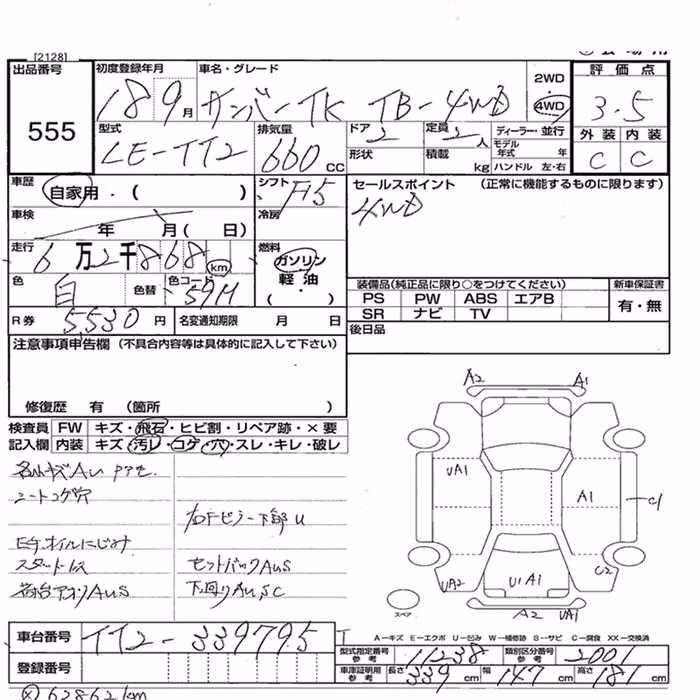 [2128]
出品番号
555
初度登録年月
18 9月
車名・グレード
サンバーTK TB-4WD
2WD
4WD
評価点
3.5
外装 内装
C C
型式
LE-TT2
排気量
660 CC
ドア 2
定員 2 人
ディーラー・並行
モデル年式 年
形状
積載 kg
ハンドル 左・右
車歴
自家用・( )
シフト F5
セールスポイント (正常に機能するものに限ります)
4WD
車検
年 月( 日)
冷房
走行
6万2千868 km
燃料
ガソリン
軽油
( ・ )
色
白
色替
色コード
51M
装備品(純正品に限り○をつけてください)
新車保証書
PS PW ABS エアB
SR ナビ TV
有・無
R券 5,530円
名変通知期限 月 日
後日品
注意事項申告欄(不具合内容等は具体的に記入して下さい)
修復歴 有 (箇所 )
検査員
記入欄
FW キズ・飛石・ヒビ割・リペア跡・×要
内装 キズ・汚レ・コゲ・穴・スレ・キレ・破レ
シートコゲ穴
右Fピラー下部U
E/チ オイルにじみ
スタッドレス
セットバックAUS
荷台アオリAUS
下回りAUSC
A2 A1
UA1 A1 C1
UA2 U1A1 C2
スペア
A2 UA1
A-キズ E-エクボ U-凹み W-補修跡 S-サビ C-腐食 XX-交換済
車台番号 TT2-339795
登録番号
型式指定番号 参考 11238
類別区分番号 参考 2001
車庫証明用 参考 長さ 339 cm 幅 147 cm 高さ 181 cm
62862km